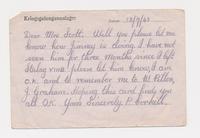 Kriegsgefangenenlager Datum: 18/9/43
Dear Mrs Scott. Will you please let me
know how Jimmy is doing. I have not
seen him for three months since I left
Stalag VIIIB please let him know I am
O.K. and to remember me to W. Killon,
J. Graham. Hoping this card finds you
all O.K. Yours Sincerely P.